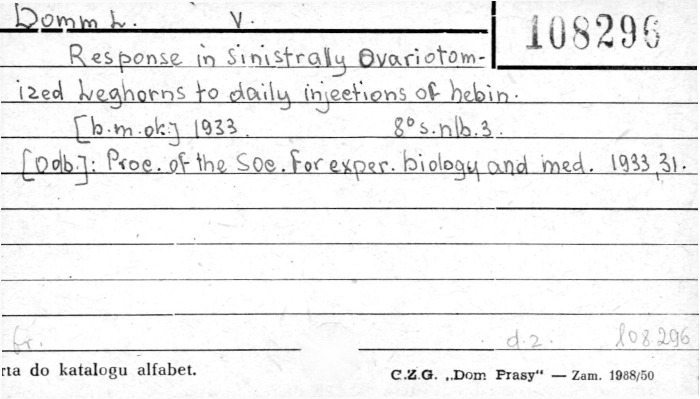 Domm L. V.
108296
Response in sinistrally Ovariotom-
ized Leghorns to daily injections of hebin.
[b.m.ok.] 1933. 8° s.nlb.3.
[Odb.]: Proc. of the Soc. for exper. biology and med. 1933, 31.
fr. d.z. 108.296
rta do katalogu alfabet. C.Z.G. „Dom Prasy" — Zam. 1988/50